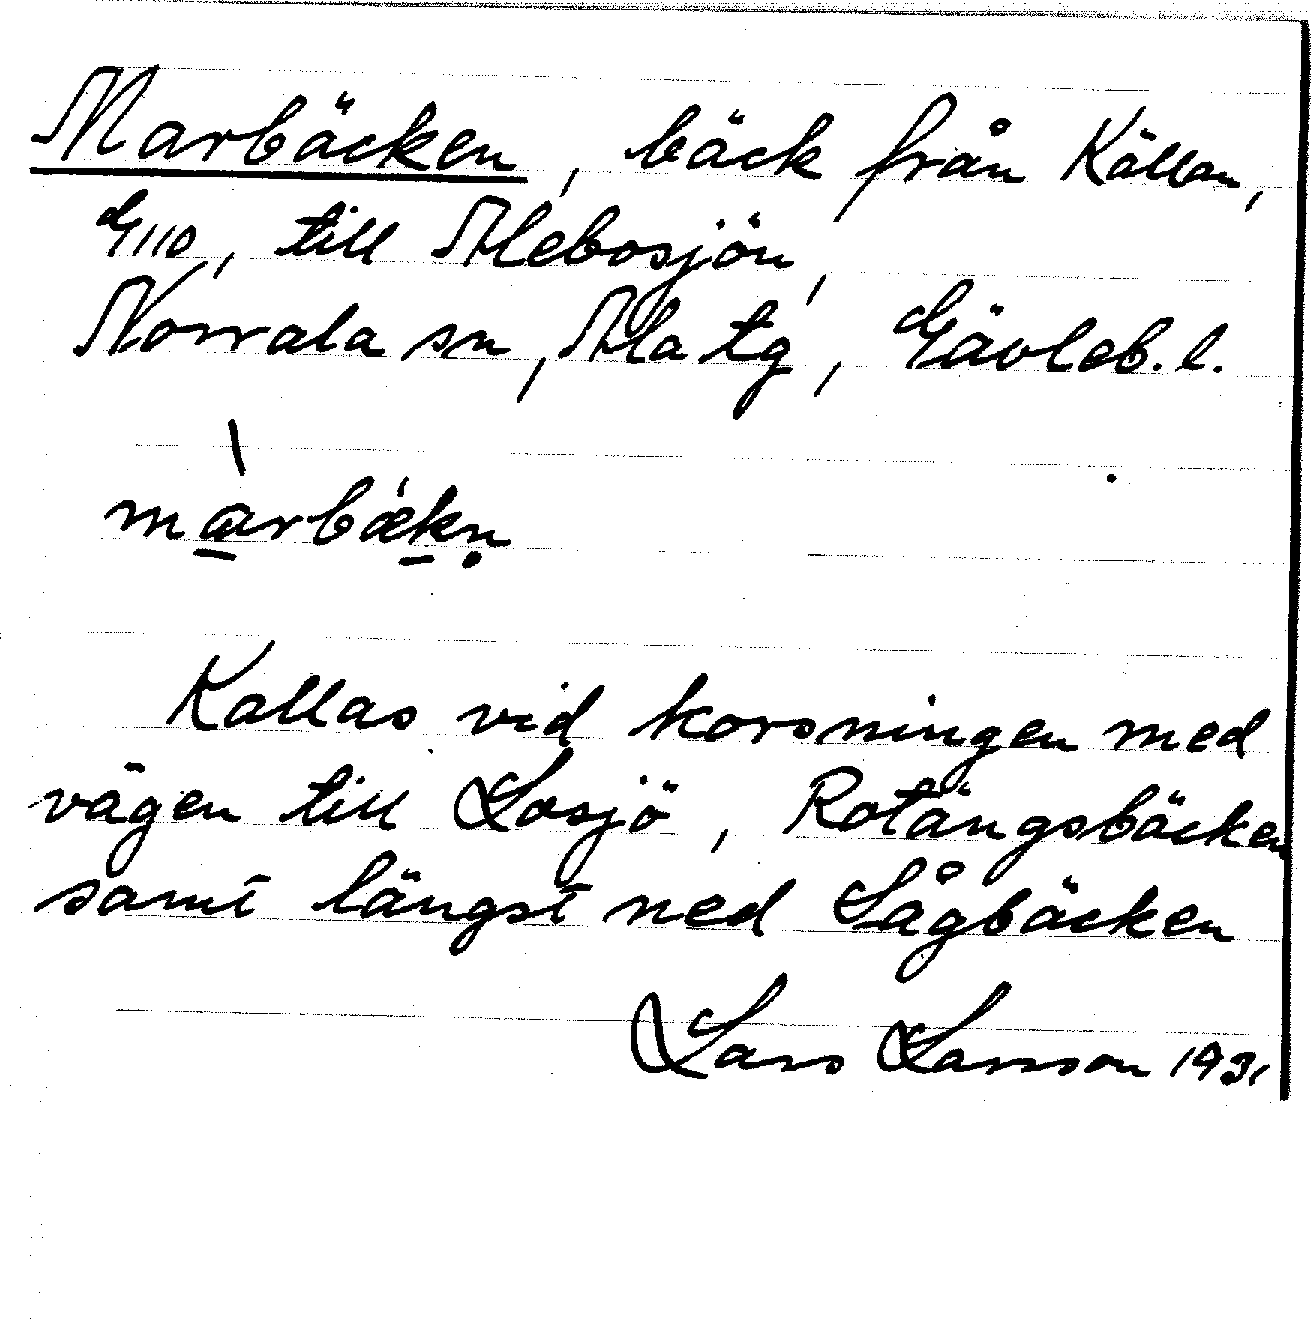 Marbäcken, bäck från Källan,
G110, till Alebosjön,
Norrala sn, Ala tg, Gävleb. l.
màrbækn̥
Kallas vid korsningen med
vägen till Losjö, Rotängsbäcken
samt längst ned Sågbäcken
Lars Larsson 1931